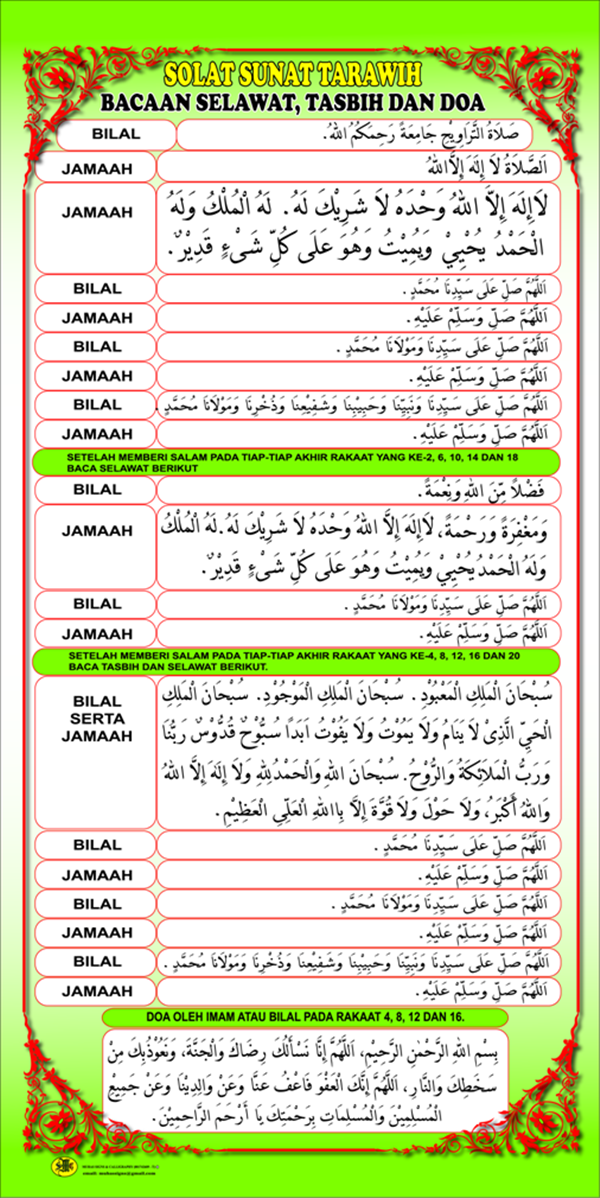 SOLAT SUNAT TARAWIH
BACAAN SELAWAT, TASBIH DAN DOA
BILAL
صَلَاةُ التَّرَاوِيْحِ جَامِعَةً رَحِمَكُمُ اللهُ.
JAMAAH
اَلصَّلَاةُ لَا إِلَهَ إِلاَّ اللهُ
JAMAAH
لَاإِلَهَ إِلاَّ اللهُ وَحْدَهُ لَا شَرِيْكَ لَهُ. لَهُ الْمُلْكُ وَلَهُ
الْحَمْدُ يُحْيِيْ وَيُمِيْتُ وَهُوَ عَلَى كُلِّ شَىْءٍ قَدِيْرٌ.
BILAL
اَللَّهُمَّ صَلِّ عَلَى سَيِّدِنَا مُحَمَّدٍ.
JAMAAH
اَللَّهُمَّ صَلِّ وَسَلِّمْ عَلَيْهِ.
BILAL
اَللَّهُمَّ صَلِّ عَلَى سَيِّدِنَا وَمَوْلَانَا مُحَمَّدٍ.
JAMAAH
اَللَّهُمَّ صَلِّ وَسَلِّمْ عَلَيْهِ.
BILAL
اَللَّهُمَّ صَلِّ عَلَى سَيِّدِنَا وَنَبِيِّنَا وَحَبِيْبِنَا وَشَفِيْعِنَا وَذُخْرِنَا وَمَوْلَانَا مُحَمَّدٍ.
JAMAAH
اَللَّهُمَّ صَلِّ وَسَلِّمْ عَلَيْهِ.
SETELAH MEMBERI SALAM PADA TIAP-TIAP AKHIR RAKAAT YANG KE-2, 6, 10, 14 DAN 18
BACA SELAWAT BERIKUT
BILAL
فَضْلًا مِّنَ اللهِ وَنِعْمَةً.
JAMAAH
وَمَغْفِرَةً وَرَحْمَةً، لَاإِلَهَ إِلاَّ اللهُ وَحْدَهُ لَا شَرِيْكَ لَهُ.لَهُ الْمُلْكُ
وَلَهُ الْحَمْدُ يُحْيِيْ وَيُمِيْتُ وَهُوَ عَلَى كُلِّ شَىْءٍ قَدِيْرٌ.
BILAL
اَللَّهُمَّ صَلِّ عَلَى سَيِّدِنَا وَمَوْلَانَا مُحَمَّدٍ.
JAMAAH
اَللَّهُمَّ صَلِّ وَسَلِّمْ عَلَيْهِ.
SETELAH MEMBERI SALAM PADA TIAP-TIAP AKHIR RAKAAT YANG KE-4, 8, 12, 16 DAN 20
BACA TASBIH DAN SELAWAT BERIKUT.
BILAL
SERTA
JAMAAH
سُبْحَانَ الْمَلِكِ الْمَعْبُوْدِ. سُبْحَانَ الْمَلِكِ الْمَوْجُوْدِ. سُبْحَانَ الْمَلِكِ
الْحَيِّ الَّذِىْ لَا يَنَامُ وَلَا يَمُوْتُ وَلَا يَفُوْتُ اَبَدًا سُبُّوْحٌ قُدُّوْسٌ رَبُّنَا
وَرَبُّ الْمَلَائِكَةِ وَالرُّوْحُ. سُبْحَانَ اللهِ وَالْحَمْدُلِلَّهِ وَلَا إِلَهَ إِلاَّ اللهُ
وَاللهُ أَكْبَرُ، وَلَا حَوْلَ وَلَا قُوَّةَ إِلاَّ بِاللهِ الْعَلِّيِ الْعَظِيْمِ.
BILAL
اَللَّهُمَّ صَلِّ عَلَى سَيِّدِنَا مُحَمَّدٍ.
JAMAAH
اَللَّهُمَّ صَلِّ وَسَلِّمْ عَلَيْهِ.
BILAL
اَللَّهُمَّ صَلِّ عَلَى سَيِّدِنَا وَمَوْلَانَا مُحَمَّدٍ.
JAMAAH
اَللَّهُمَّ صَلِّ وَسَلِّمْ عَلَيْهِ.
BILAL
اَللَّهُمَّ صَلِّ عَلَى سَيِّدِنَا وَنَبِيِّنَا وَحَبِيْبِنَا وَشَفِيْعِنَا وَذُخْرِنَا وَمَوْلَانَا مُحَمَّدٍ.
JAMAAH
اَللَّهُمَّ صَلِّ وَسَلِّمْ عَلَيْهِ.
DOA OLEH IMAM ATAU BILAL PADA RAKAAT 4, 8, 12 DAN 16.
بِسْمِ اللهِ الرَّحْمٰنِ الرَّحِيْمِ، اَللَّهُمَّ إِنَّا نَسْأَلُكَ رِضَاكَ وَالْجَنَّةَ، وَنَعُوْذُبِكَ مِنْ
سَخَطِكَ وَالنَّارِ، اَللَّهُمَّ إِنَّكَ الْعَفُوَ فَاعْفُ عَنَّا وَعَنْ وَالِدِيْنَا وَعَنْ جَمِيْعِ
الْمُسْلِمِيْنَ وَالْمُسْلِمَاتِ بِرَحْمَتِكَ يَا أَرْحَمَ الرَّاحِمِيْنَ.